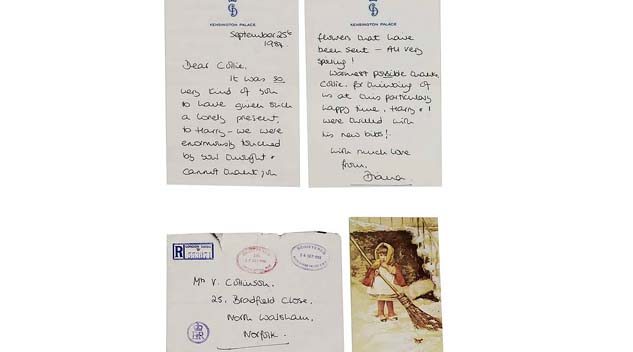 KENSINGTON PALACE
September 25th
1984.
Dear Collie,
It was so
very kind of you
to have given such
a lovely present,
to Harry - we were
enormously touched
by your thought &
cannot thank you
KENSINGTON PALACE
flowers that have
been sent - All very
spoiling!
Warmest possible thanks
Collie, for thinking of
us at this particularly
happy time. Harry & I
were thrilled with
his new bibs!
With much love
from,
Diana.
R
REGISTERED
REGISTERED
Mr V. Collinson,
25, Bradfield Close,
North Walsham,
Norfolk.